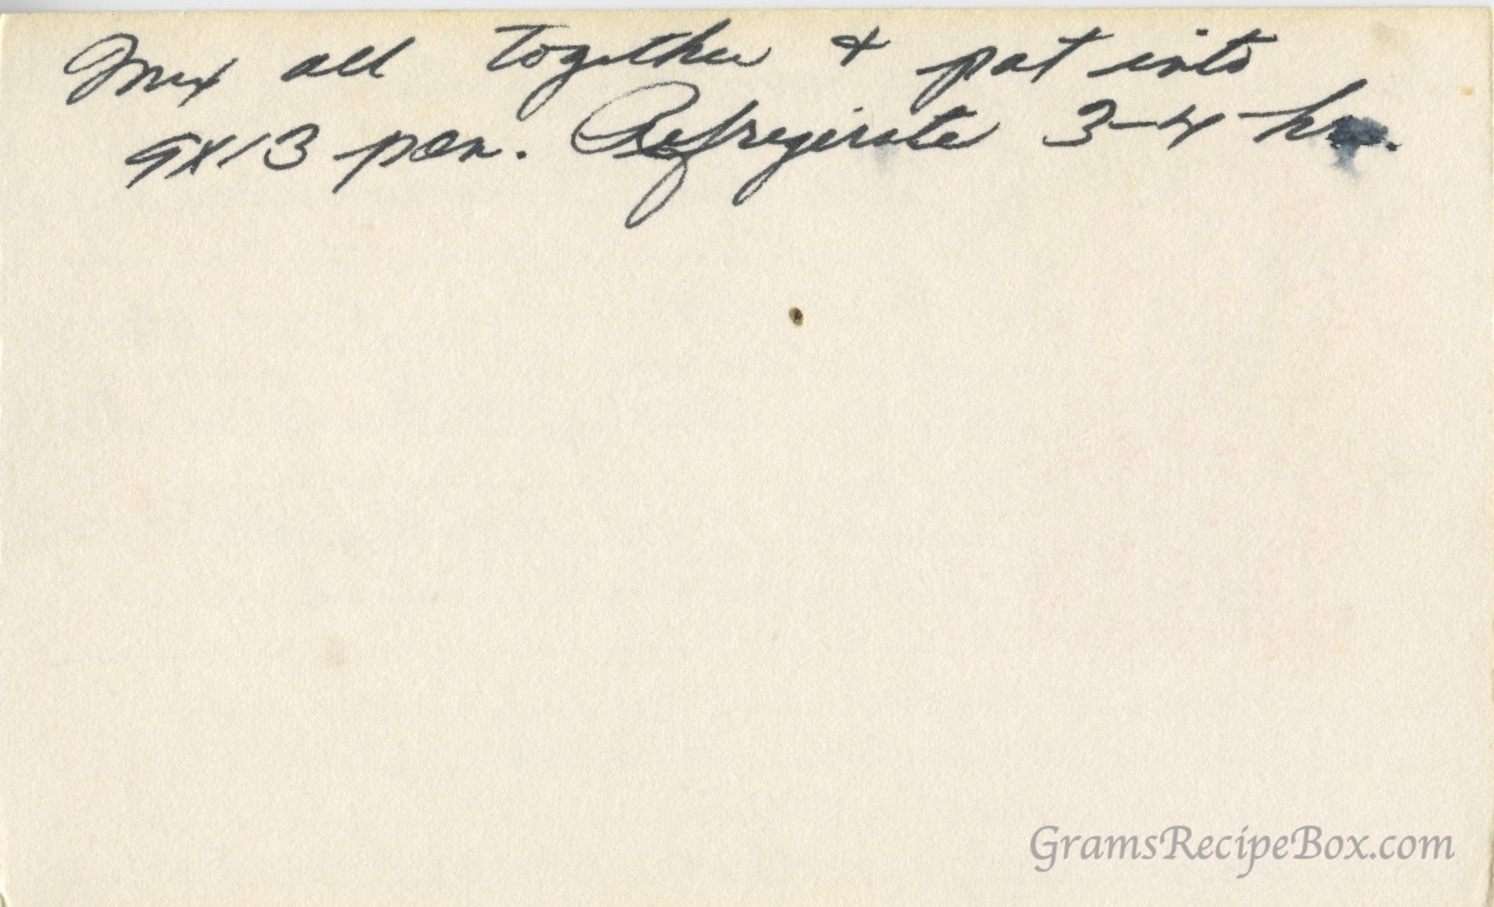 Mix all together & pat into
9x13 pan. Refregerate 3-4 hr.
GramsRecipeBox.com